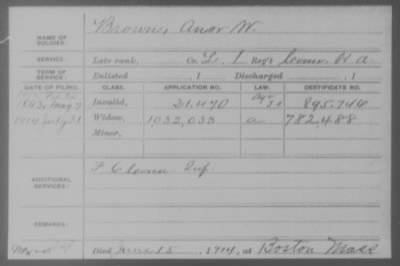 NAME OF SOLDIER: Brown, W.
SERVICE: Late rank, Co. L, 1 Reg't Conn. H. A.
TERM OF SERVICE: Enlisted , 1 Discharged , 1
DATE OF FILING. CLASS. APPLICATION NO. LAW. CERTIFICATE NO.
Invalid, 21,470 895,746
1914 July 31 Widow, 1,032,033 a 782,488
Minor,
ADDITIONAL SERVICES: F 6 Conn Inf.
REMARKS:
Died June 15, 1914, at Boston Mass